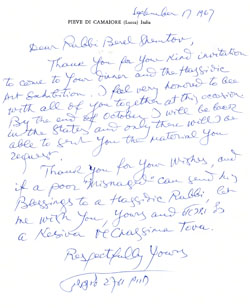 PIEVE DI CAMAIORE (Lucca) Italia
September 17 1967
Dear Rabbi Berel Shemtov,
Thank You for Your kind invitation
to come to Your Dinner and the Hassidic
Art Exhibition. I feel very honored to be
with all of you together at this occasion
By the end of October I will be back
in the States and only then will be
able to send You the material You
request.
Thank You for Your wishes, and
if a poor "Misnaged" can send his
Blessings to a Hassidic Rabbi, let
me wish You, Yours and
a Kesiva V'Chassima Tova.
Respectfully Yours